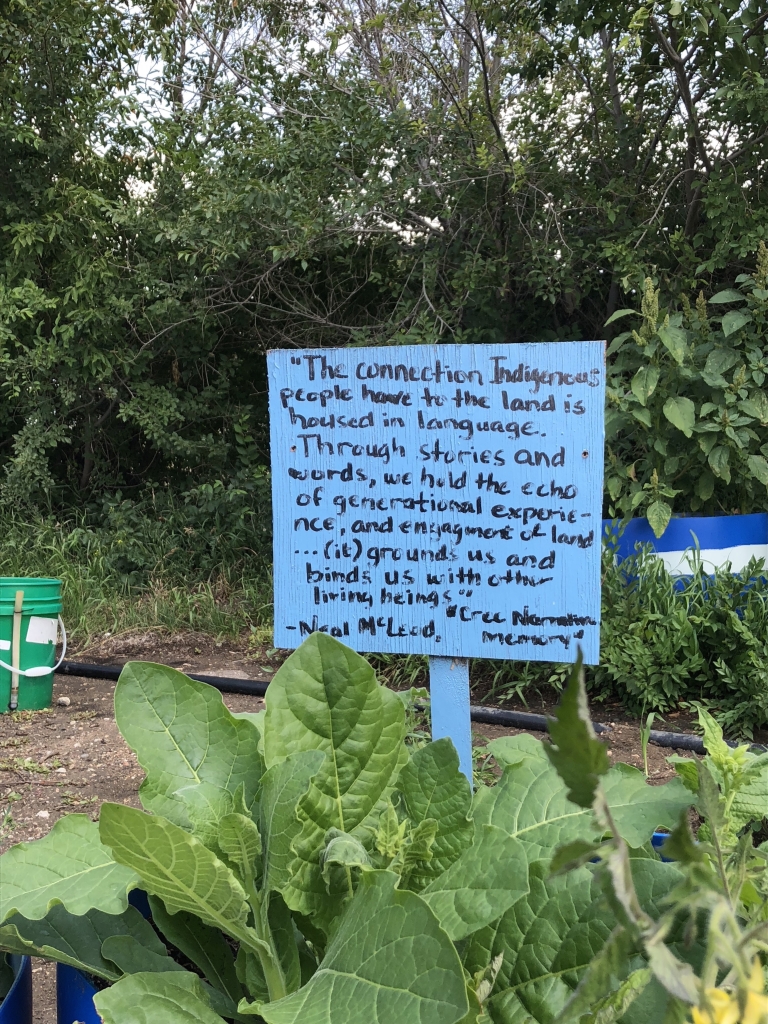 "The connection Indigenous
people have to the land is
housed in language.
Through stories and
words, we hold the echo
of generational experie-
nce, and engagment of land
... (it) grounds us and
binds us with other
living beings"
- Neal McLeod, "Cree Narrative
memory"